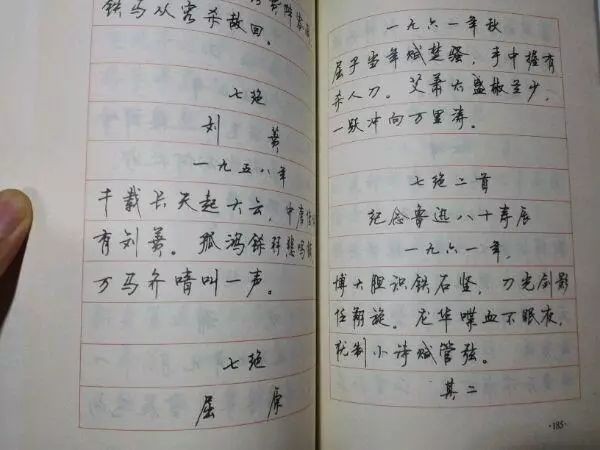 铁马从容杀敌回。
七绝
刘 蕡
一九五八年
千载长天起大云，中唐
有刘蕡。孤鸿铩羽悲鸣
万马齐喑叫一声。
七绝
屈 原
一九六一年秋
屈子当年赋楚骚，手中握有
杀人刀。艾萧太盛椒兰少，
一跃冲向万里涛。
七绝二首
纪念鲁迅八十寿辰
一九六一年，
博大胆识铁石坚，刀光剑影
任翔旋。龙华喋血不眠夜，
犹制小诗赋管弦。
其二
·185·